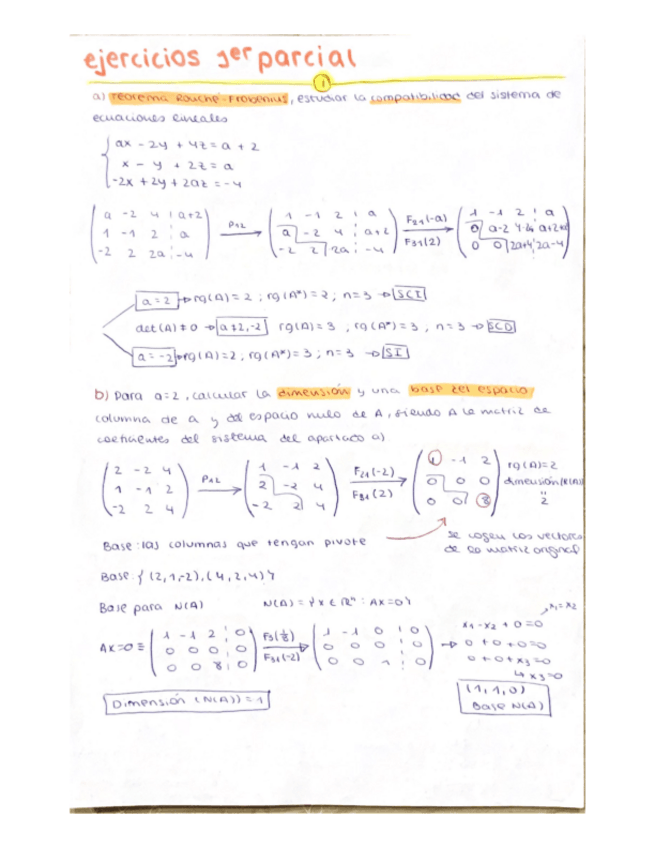 ejercicios 1er parcial
1
a) Teorema Rouché-Frobenius, estudiar la compatibilidad del sistema de
ecuaciones lineales
ax - 2y + 4z = a + 2
x - y + 2z = a
-2x + 2y + 2az = -4
a -2 4 | a+2
1 -1 2 | a
-2 2 2a | -4
P12
1 -1 2 | a
a -2 4 | a+2
-2 2 2a | -4
F21(-a)
F31(2)
1 -1 2 | a
0 a-2
0 0 2a+4 2a-4
a = 2 → rg(A) = 2 ; rg(A*) = 2 ; n = 3 → SCI
det(A) ≠ 0 → a ≠ 2,-2 rg(A) = 3 ; rg(A*) = 3 , n = 3 → SCD
a = -2 → rg(A) = 2 ; rg(A*) = 3 ; n = 3 → SI
b) Para a=2, calcular la dimensión y una base del espacio
columna de a y del espacio nulo de A, siendo A la matriz de
coeficientes del sistema del apartado a)
2 -2 4
1 -1 2
-2 2 4
P12
1 -1 2
2 -2 4
-2 2 4
F21(-2)
F31(2)
1 -1 2
0 0 0
0 0 8
rg(A)=2
dimensión(R(A))
"
2
Base: las columnas que tengan pivote
se cogen los vectores
de la matriz original
Base: { (2,1,-2), (4,2,4) }
Base para N(A) N(A) = { x ∈ Rⁿ : Ax=0 }
Ax=0 ≡
1 -1 2 | 0
0 0 0 | 0
0 0 8 | 0
F3(1/8)
F31(-2)
1 -1 0 | 0
0 0 0 | 0
0 0 1 | 0
x1=x2
x1 - x2 + 0 = 0
0 + 0 + 0 = 0
0 + 0 + x3 = 0
x3 = 0
Dimensión (N(A)) = 1
(1,1,0)
Base N(A)